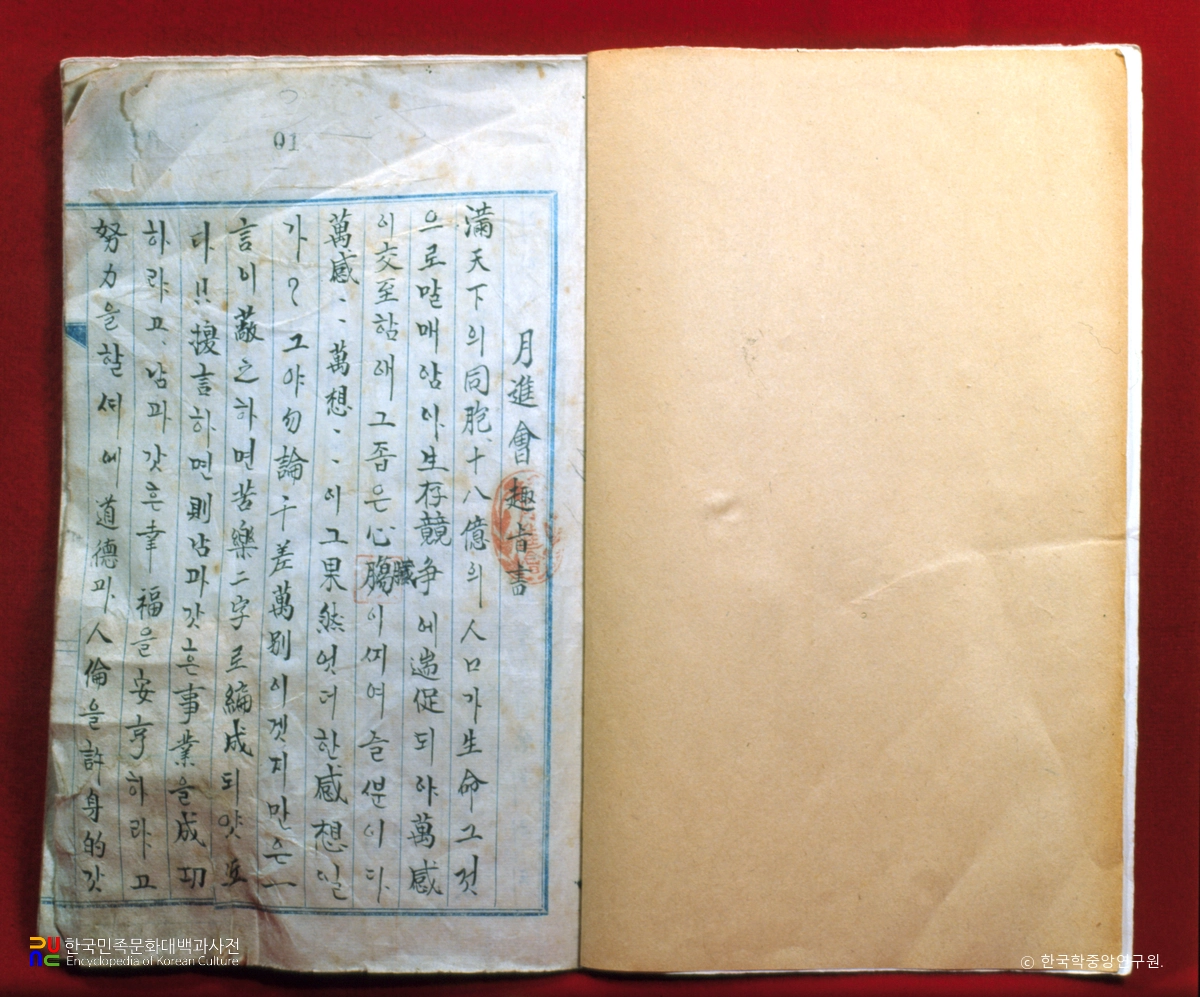 01
月進會趣旨書
滿天下의同胞、十八億의人口가生命그것
으로말매암아、生存競爭에遄促되야萬感
이交至함애그좁은心腸臟이찌여슬분이다.
萬感、、萬想、、이그果然엇더한感想일
가? 그야勿論千差萬別이겟지만은一
言이蔽之하면苦樂二字로編成되얏
다!! 換言하면則남과갓흔事業을成功
하랴고、남과갓흔幸福을安亨하랴고
努力을할셔에道德과、人倫을許身的갓
한국민족문화대백과사전
Encyclopedia of Korean Culture
© 한국학중앙연구원.